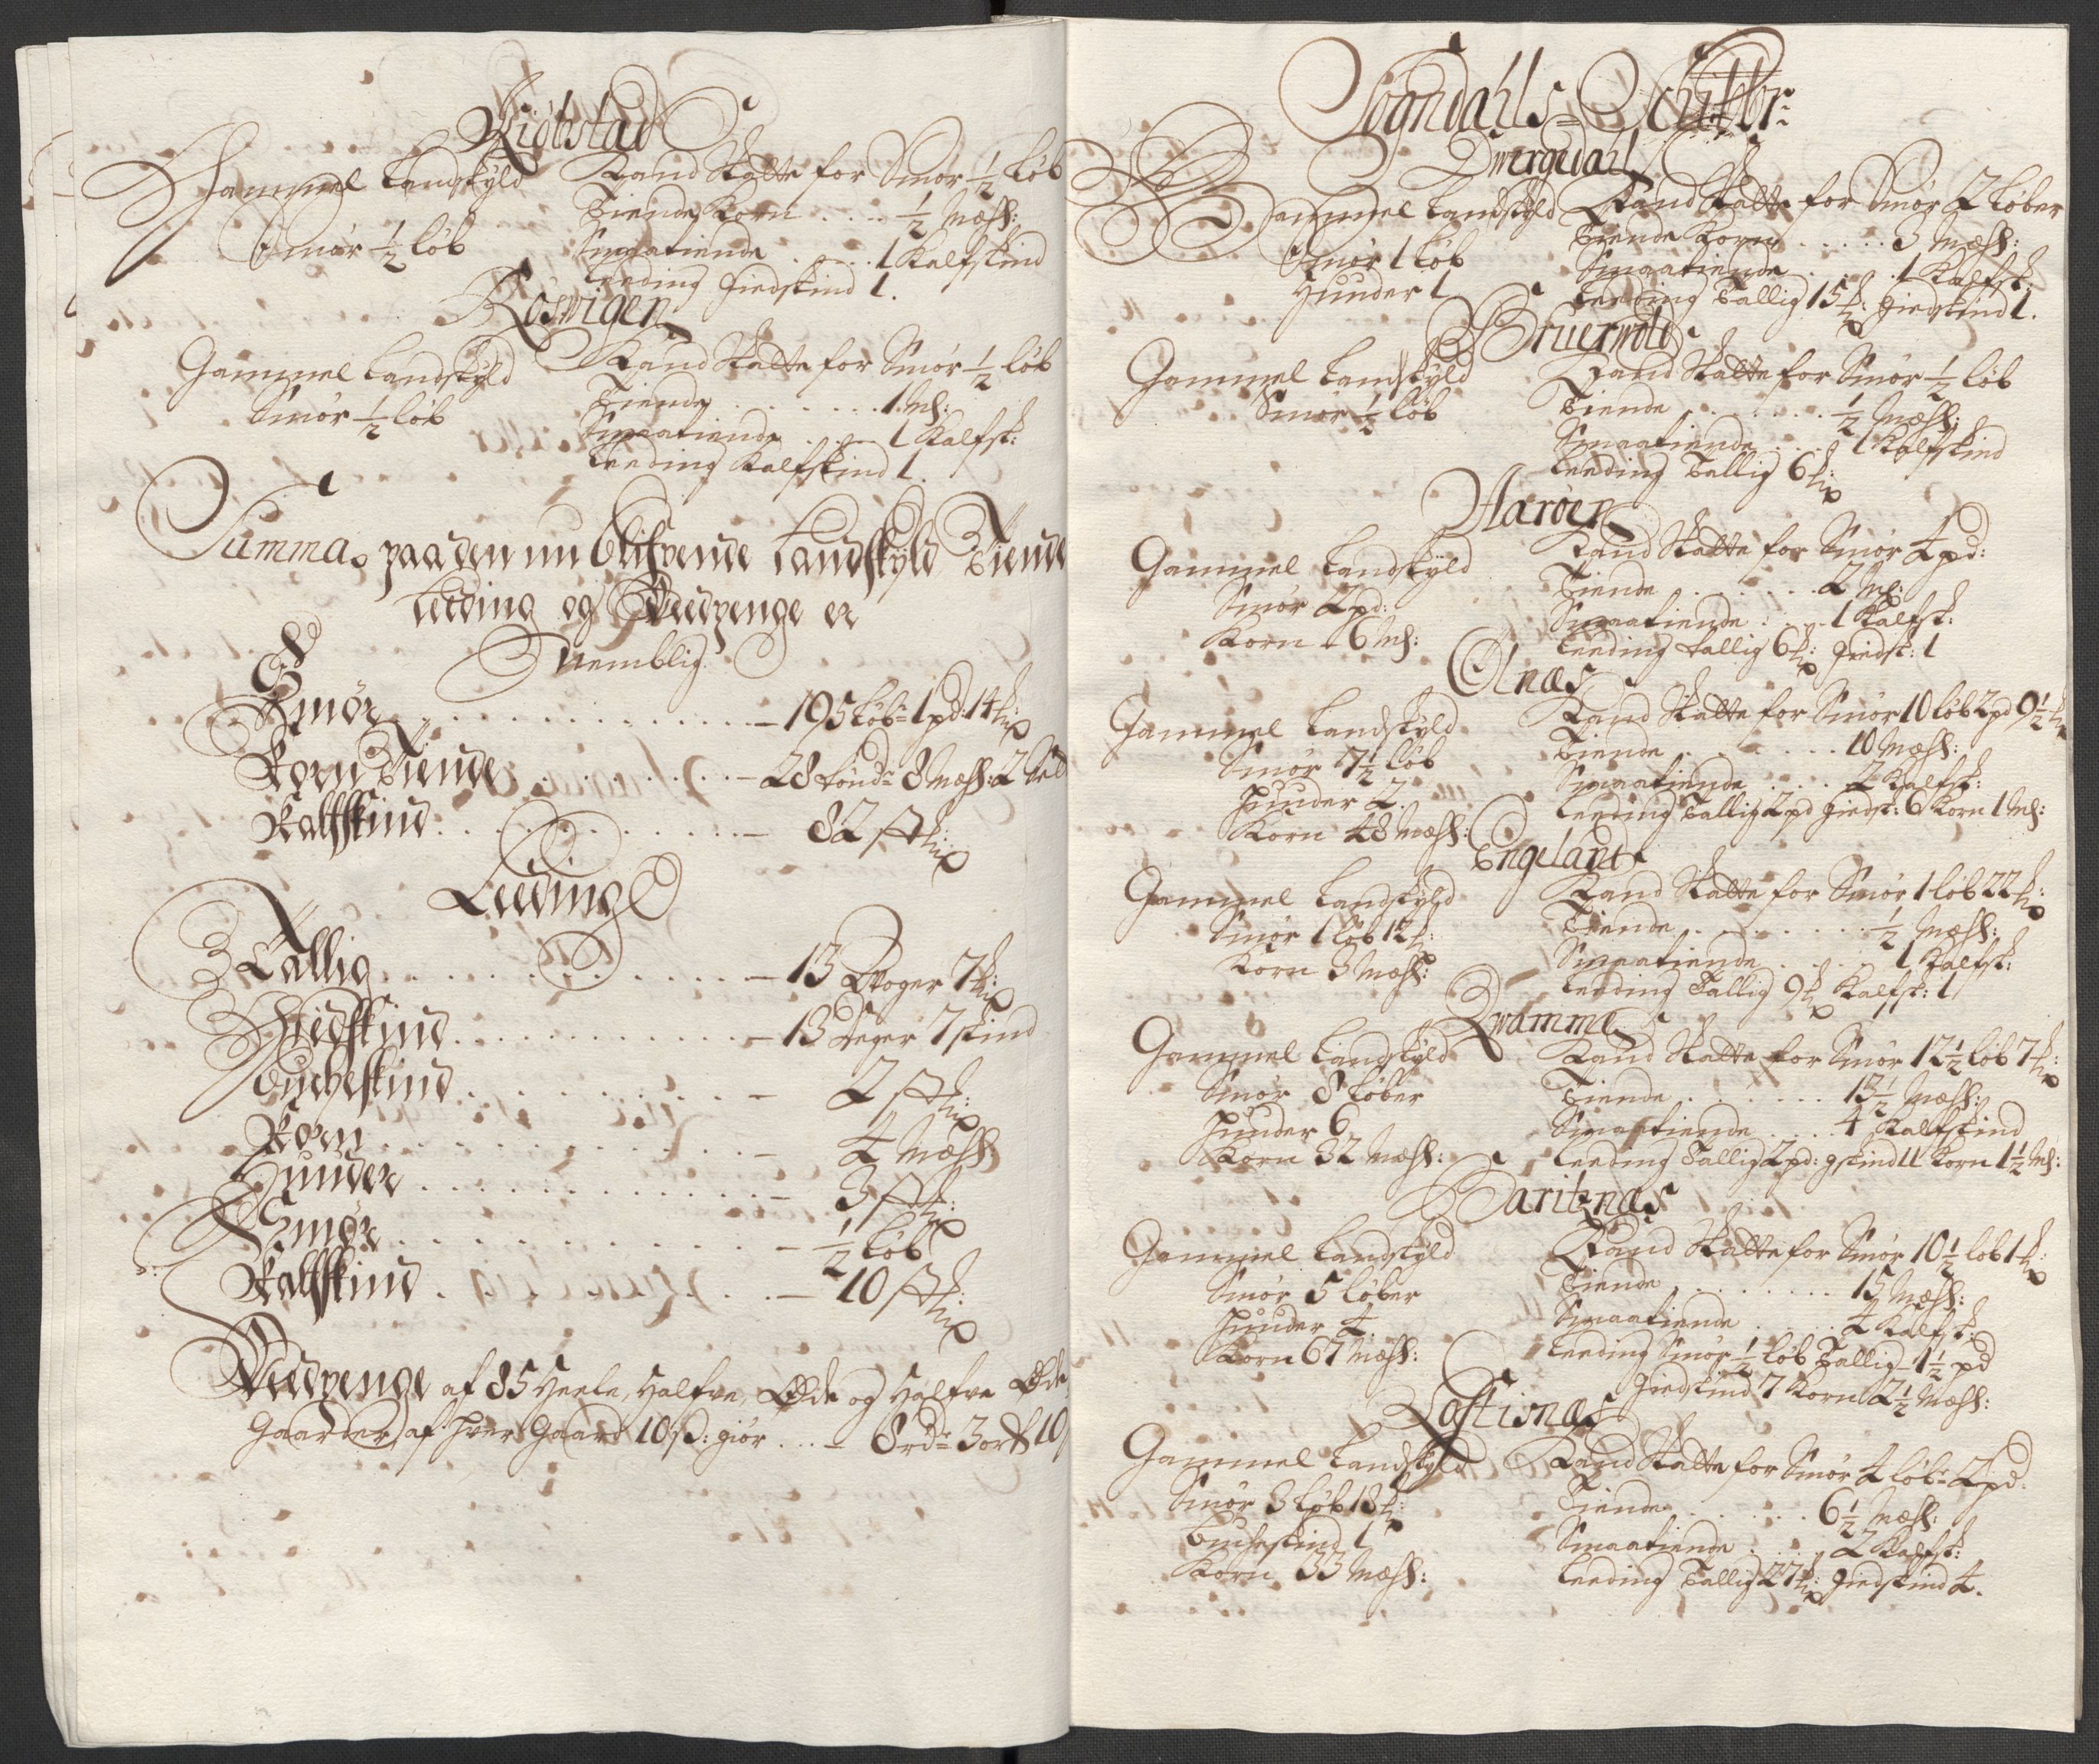 Kiølstad
Gammel Landskyld
Smør ½ Løb
Land Skatte for Smør ½ Løb
Tiende Korn . . . . ½ Mæhl:
Smaatiende . . . . 1 Kalfskind
Leeding Giedskind 1.
Røswigen
Gammel Landskyld
Smør ½ Løb
Land Skatte for Smør ½ Løb
Tiende . . . . . . . 1 Mh:
Smaatiende . . . . 1 Kalfsk:
Leeding Kalfskind 1.
Summa paa den nu blifvende Landskyld Tiende
Leeding og Weedpenge er
Nemblig.
Smør . . . . . . . . . . . . . . 195 Løb= 1 pd: 14
Korn Tiende . . . . . . . . 28 tønd= 8 Mæhl: 2
Kalfskind . . . . . . . . . . . 82 stk:
Leeding
Tallig . . . . . . . . . . . . . . 13 Woger 7
Giedskind . . . . . . . . . . . 13 Deger 7 skind
Bucheskind . . . . . . . . . . 2 stk:
Korn . . . . . . . . . . . . . . 4 Mæhl:
Hunder . . . . . . . . . . . . 3 stk:
Smør . . . . . . . . . . . . . ½ Løb
Kalfskind . . . . . . . . . . . 10 stk:
Weedpenge af 85 Heele, Halfve, Øde og Halfve Øde
Gaarder, af hver Gaard 10 s: giør . . . 8 rd= 3 ort 10
Sogndahls Schibbr:
Dwergedahl
Gammel Landskyld
Smør 1 Løb
Hunder 1
Land Skatte for Smør 2 Løber
Tiende Korn . . . . . 3 Mæhl:
Smaatiende . . . . 1 Kalfsk:
Leeding Tallig 15 Giedskind 1.
Bruerwold
Gammel Landskyld
Smør ½ Løb
Land Skatte for Smør ½ Løb
Tiende . . . . . . . ½ Mæhl:
Smaatiende . . . . 1 Kalfskind
Leeding Tallig 6
Aarøen
Gammel Landskyld
Smør 2 pd:
Korn 6 Mh:
Land Skatte for Smør 4 pd:
Tiende . . . . . . . 2 Mh:
Smaatiende . . . . 1 Kalfsk:
Leeding Tallig 6 Giedsk: 1
Olnæs
Gammel Landskyld
Smør 7½ Løb
Hunder 2.
Korn 48 Mæhl:
Land Skatte for Smør 10 Løb 2 pd 9½
Tiende . . . . . . . 10 Mæhl:
Smaatiende . . . . 2 Kalfsk:
Leeding Tallig 2 pd Giedsk: 6 Korn 1 Mh:
Engeland
Gammel Landskyld
Smør 1 Løb 12
Korn 3 Mæhl:
Land Skatte for Smør 1 Løb 22
Tiende . . . . . . . . ½ Mæhl:
Smaatiende . . . . . 1 Kalfsk:
Leeding Tallig 9 Kalfsk: 1
Qwamme
Gammel Landskyld
Smør 8 Løber
Hunder 6
Korn 32 Mæhl:
Land Skatte for Smør 12½ Løb 7
Tiende . . . . . . . 13½ Mæhl:
Smaatiende . . . . 4 Kalfskind
Leeding Tallig 2 pd: gskind 11 Korn 1½ Mh:
Baritznæs
Gammel Landskyld
Smør 5 Løber
Hunder 4.
Korn 67 Mæhl:
Land Skatte for Smør 10½ Løb 1
Tiende . . . . . . . . 15 Mæhl:
Smaatiende . . . . . 4 Kalfsk:
Leeding Smør ½ Løb Tallig 1½ pd
Giedskind 7 Korn 2½ Mæhl:
Loftisnæs
Gammel Landskyld
Smør 3 Løb 18
Buchskind 1
Korn 33 Mæhl:
Land Skatte for Smør 4 Løb= 2 pd.
Tiende . . . . . . . 6½ Mæhl:
Smaatiende . . . . . 2 Kalfsk:
Leeding Tallig 27 Giedskind 4.